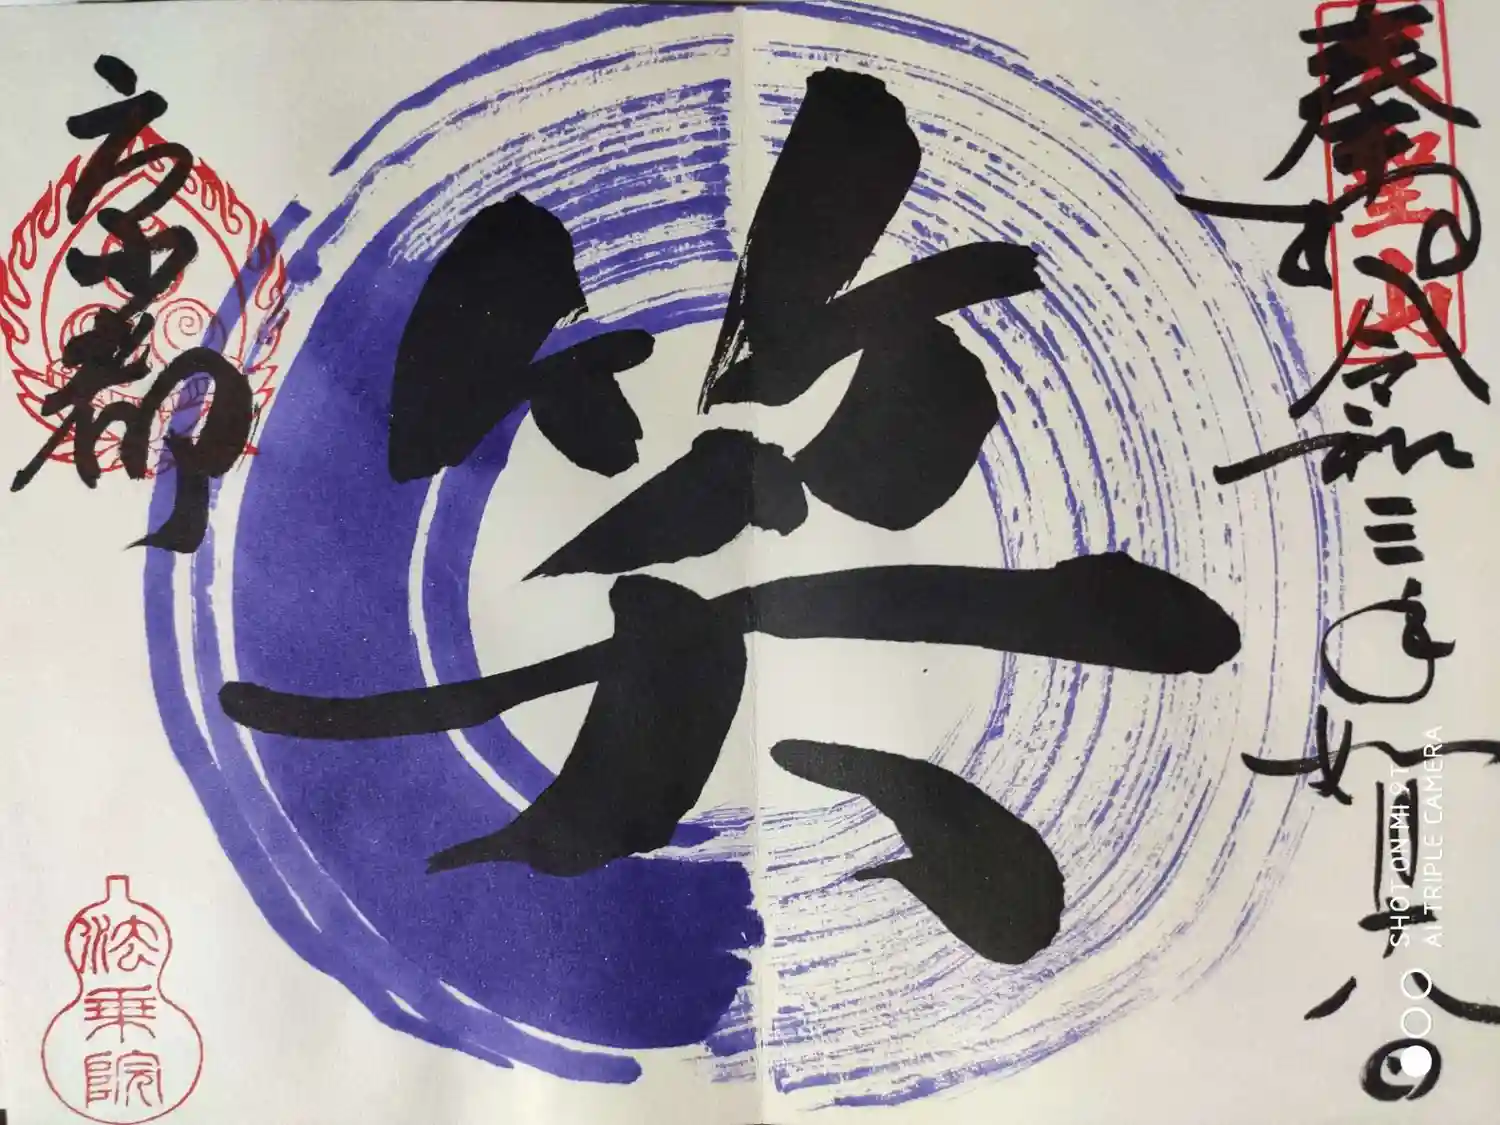 奉拝 令和三年如月十八日
聖山
笑
京都
法乗院
SHOT ON MI 9T
AI TRIPLE CAMERA